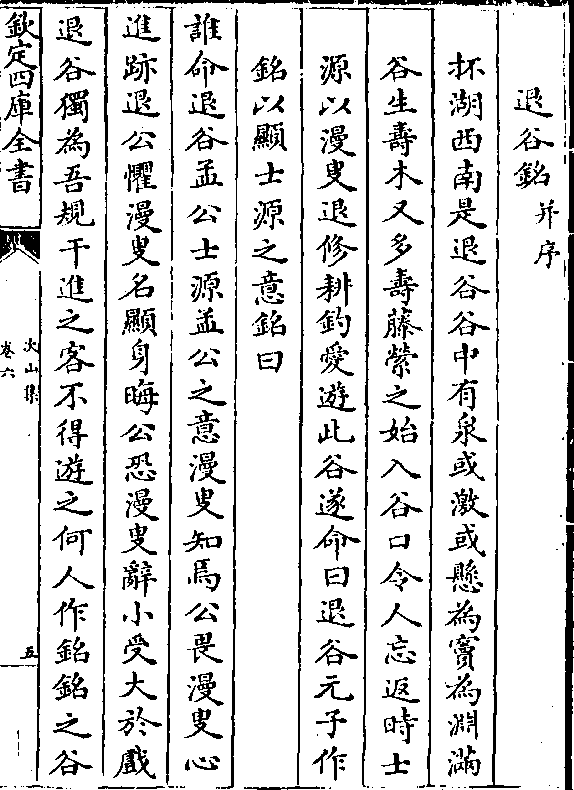 退谷銘并序
抔湖西南是退谷谷中有泉或激或懸為竇為淵滿
谷生壽木又多壽藤縈之始入谷口令人忘返時士
源以漫叟退修耕釣愛遊此谷遂命曰退谷元子作
銘以顯士源之意銘曰
誰命退谷孟公士源孟公之意漫叟知焉公畏漫叟心
進跡退公懼漫叟名顯身晦公恐漫叟辭小受大於戲
退谷獨為吾規干進之客不得遊之何人作銘銘之谷
欽定四庫全書
次山集
卷六
五